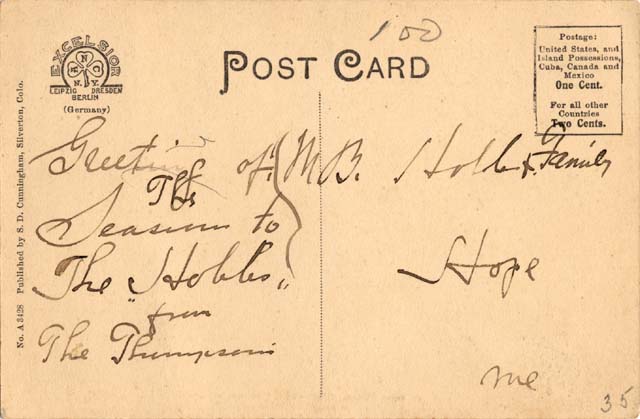 100
EXCELSIOR
A N C
N.Y.
LEIPZIG DRESDEN
BERLIN
(Germany)
POST CARD
Postage:
United States, and
Island Possessions,
Cuba, Canada and
Mexico
One Cent.
For all other
Countries
Two Cents.
No. A 3428 Published by S. D. Cunningham, Silverton, Colo.
Greeting of
The
Season to
The "Hobbs"
from
The Thompsons
M B. Hobbs & Family
Hope
Me
35